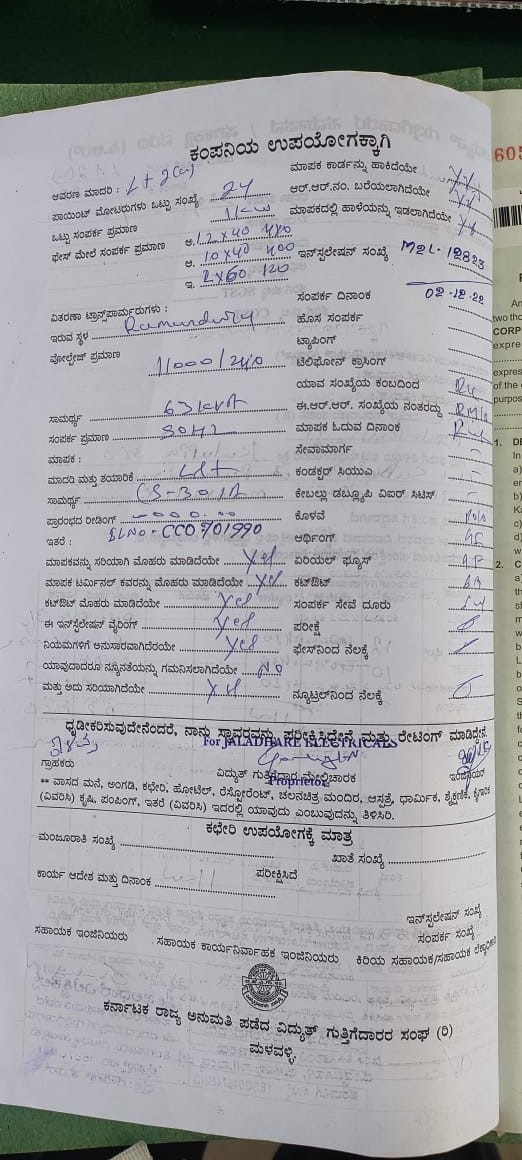 ಕಂಪನಿಯ ಉಪಯೋಗಕ್ಕಾಗಿ
ಆವರಣ ಮಾದರಿ : L+2(a) ಮಾಪಕ ಕಾರ್ಡನ್ನು ಹಾಕಿದೆಯೇ
ಪಾಯಿಂಟ್ ಮೋಟರುಗಳು ಒಟ್ಟು ಸಂಖ್ಯೆ 24 ಆರ್.ಆರ್.ನಂ. ಬರೆಯಲಾಗಿದೆಯೇ
ಒಟ್ಟು ಸಂಪರ್ಕ ಪ್ರಮಾಣ 1kw ಮಾಪಕದಲ್ಲಿ ಹಾಳೆಯನ್ನು ಇಡಲಾಗಿದೆಯೇ
ಫೇಸ್ ಮೇಲೆ ಸಂಪರ್ಕ ಪ್ರಮಾಣ ಅ. 12x40 480
ಆ. 10x40 400 ಇನ್‌ಸ್ಟಲೇಷನ್ ಸಂಖ್ಯೆ M2L-12823
ಇ. 2x60 120
ಸಂಪರ್ಕ ದಿನಾಂಕ 02-12-22
ವಿತರಣಾ ಟ್ರಾನ್ಸ್‌ಪಾರ್ಮರುಗಳು : ಹೊಸ ಸಂಪರ್ಕ
ಇರುವ ಸ್ಥಳ ಟ್ಯಾಪಿಂಗ್
ವೋಲ್ಟೇಜ್ ಪ್ರಮಾಣ 11000/240 ಟೆಲಿಫೋನ್ ಕ್ರಾಸಿಂಗ್
ಯಾವ ಸಂಖ್ಯೆಯ ಕಂಬದಿಂದ
ಸಾಮರ್ಥ್ಯ 63kVA ಈ.ಆರ್.ಆರ್. ಸಂಖ್ಯೆಯ ನಂತರದ್ದು
ಸಂಪರ್ಕ ಪ್ರಮಾಣ 50HZ ಮಾಪಕ ಓದುವ ದಿನಾಂಕ
ಮಾಪಕ : ಸೇವಾಮಾರ್ಗ
ಮಾದರಿ ಮತ್ತು ತಯಾರಿಕೆ L&T ಕಂಡಕ್ಟರ್ ಸಿಯುಎ
ಸಾಮರ್ಥ್ಯ (5-30)A ಕೇಬಲ್ಲು ಡಬ್ಲ್ಯೂಪಿ ವಿಐರ್ ಸಿಟಿಸ್
ಪ್ರಾರಂಭದ ರೀಡಿಂಗ್ ಕೊಳವೆ
ಇತರೆ : SLNO-CCO701990 ಆರ್ಥಿಂಗ್
ಮಾಪಕವನ್ನು ಸರಿಯಾಗಿ ಮೊಹರು ಮಾಡಿದೆಯೇ Yes ಏರಿಯಲ್ ಫ್ಯೂಸ್
ಮಾಪಕ ಟರ್ಮಿನಲ್ ಕವರನ್ನು ಮೊಹರು ಮಾಡಿದೆಯೇ Yes ಕಟ್‌ಔಟ್
ಕಟ್‌ಔಟ್ ಮೊಹರು ಮಾಡಿದೆಯೇ Yes ಸಂಪರ್ಕ ಸೇವೆ ದೂರು
ಈ ಇನ್‌ಸ್ಟಲೇಷನ್ ವೈರಿಂಗ್ Yes ಪರೀಕ್ಷೆ
ನಿಯಮಗಳಿಗೆ ಅನುಸಾರವಾಗಿದೆರಯೇ Yes ಫೇಸ್‌ನಿಂದ ನೆಲಕ್ಕೆ
ಯಾವುದಾದರೂ ನ್ಯೂನತೆಯನ್ನು ಗಮನಿಸಲಾಗಿದೆಯೇ No
ಮತ್ತು ಅದು ಸರಿಯಾಗಿದೆಯೇ Yes ನ್ಯೂಟ್ರಲ್‌ನಿಂದ ನೆಲಕ್ಕೆ
ಧೃಡೀಕರಿಸುವುದೇನೆಂದರೆ, ನಾನು ಸ್ಥಾವರವನ್ನು ಪರೀಕ್ಷಿಸಿದ್ದೇನೆ ಮತ್ತು ರೇಟಿಂಗ್ ಮಾಡಿದ್ದೇನೆ.
For JALADHARE ELECTRICALS
ಗ್ರಾಹಕರು ವಿದ್ಯುತ್ ಗುತ್ತಿಗೆದಾರ ಮೇಲ್ವಿಚಾರಕ ಇಂಜಿನಿಯರ್
Proprietor
** ವಾಸದ ಮನೆ, ಅಂಗಡಿ, ಕಛೇರಿ, ಹೋಟೆಲ್, ರೆಸ್ಟೋರೆಂಟ್, ಚಲನಚಿತ್ರ ಮಂದಿರ, ಆಸ್ಪತ್ರೆ, ಧಾರ್ಮಿಕ, ಶೈಕ್ಷಣಿಕ, ಕೈಗಾರಿಕ
(ವಿವರಿಸಿ) ಕೃಷಿ, ಪಂಪಿಂಗ್, ಇತರೆ (ವಿವರಿಸಿ) ಇದರಲ್ಲಿ ಯಾವುದು ಎಂಬುವುದನ್ನು ತಿಳಿಸಿರಿ.
ಕಛೇರಿ ಉಪಯೋಗಕ್ಕೆ ಮಾತ್ರ
ಮಂಜೂರಾತಿ ಸಂಖ್ಯೆ ಖಾತೆ ಸಂಖ್ಯೆ
ಕಾರ್ಯ ಆದೇಶ ಮತ್ತು ದಿನಾಂಕ ಪರೀಕ್ಷಿಸಿದೆ
ಇನ್‌ಸ್ಟಲೇಷನ್ ಸಂಖ್ಯೆ
ಸಂಪರ್ಕ ಸಂಖ್ಯೆ
ಸಹಾಯಕ ಇಂಜಿನಿಯರು ಸಹಾಯಕ ಕಾರ್ಯನಿರ್ವಾಹಕ ಇಂಜಿನಿಯರು ಕಿರಿಯ ಸಹಾಯಕ/ಸಹಾಯಕ
ಕರ್ನಾಟಕ ರಾಜ್ಯ ಅನುಮತಿ ಪಡೆದ ವಿದ್ಯುತ್ ಗುತ್ತಿಗೆದಾರರ ಸಂಘ (ರಿ)
ಮಳವಳ್ಳಿ.
605
two tho
CORP
expre
expres
of the
purpos